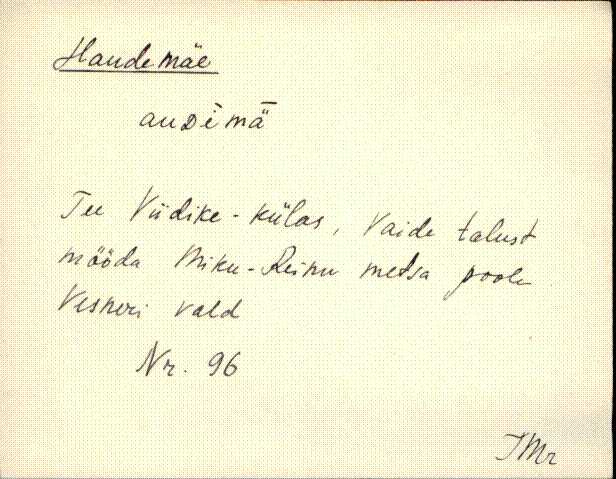 Haudemäe
auDèmǟ
Tee Viidike-külas, Vaide talust
mööda Miku-Reinu metsa poole
Vesneri vald
Nr. 96
TMr